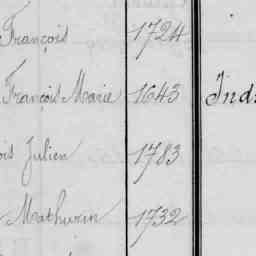 François 1724
François Marie 1643 Ind
ois Julien 1783
Mathurin 1732